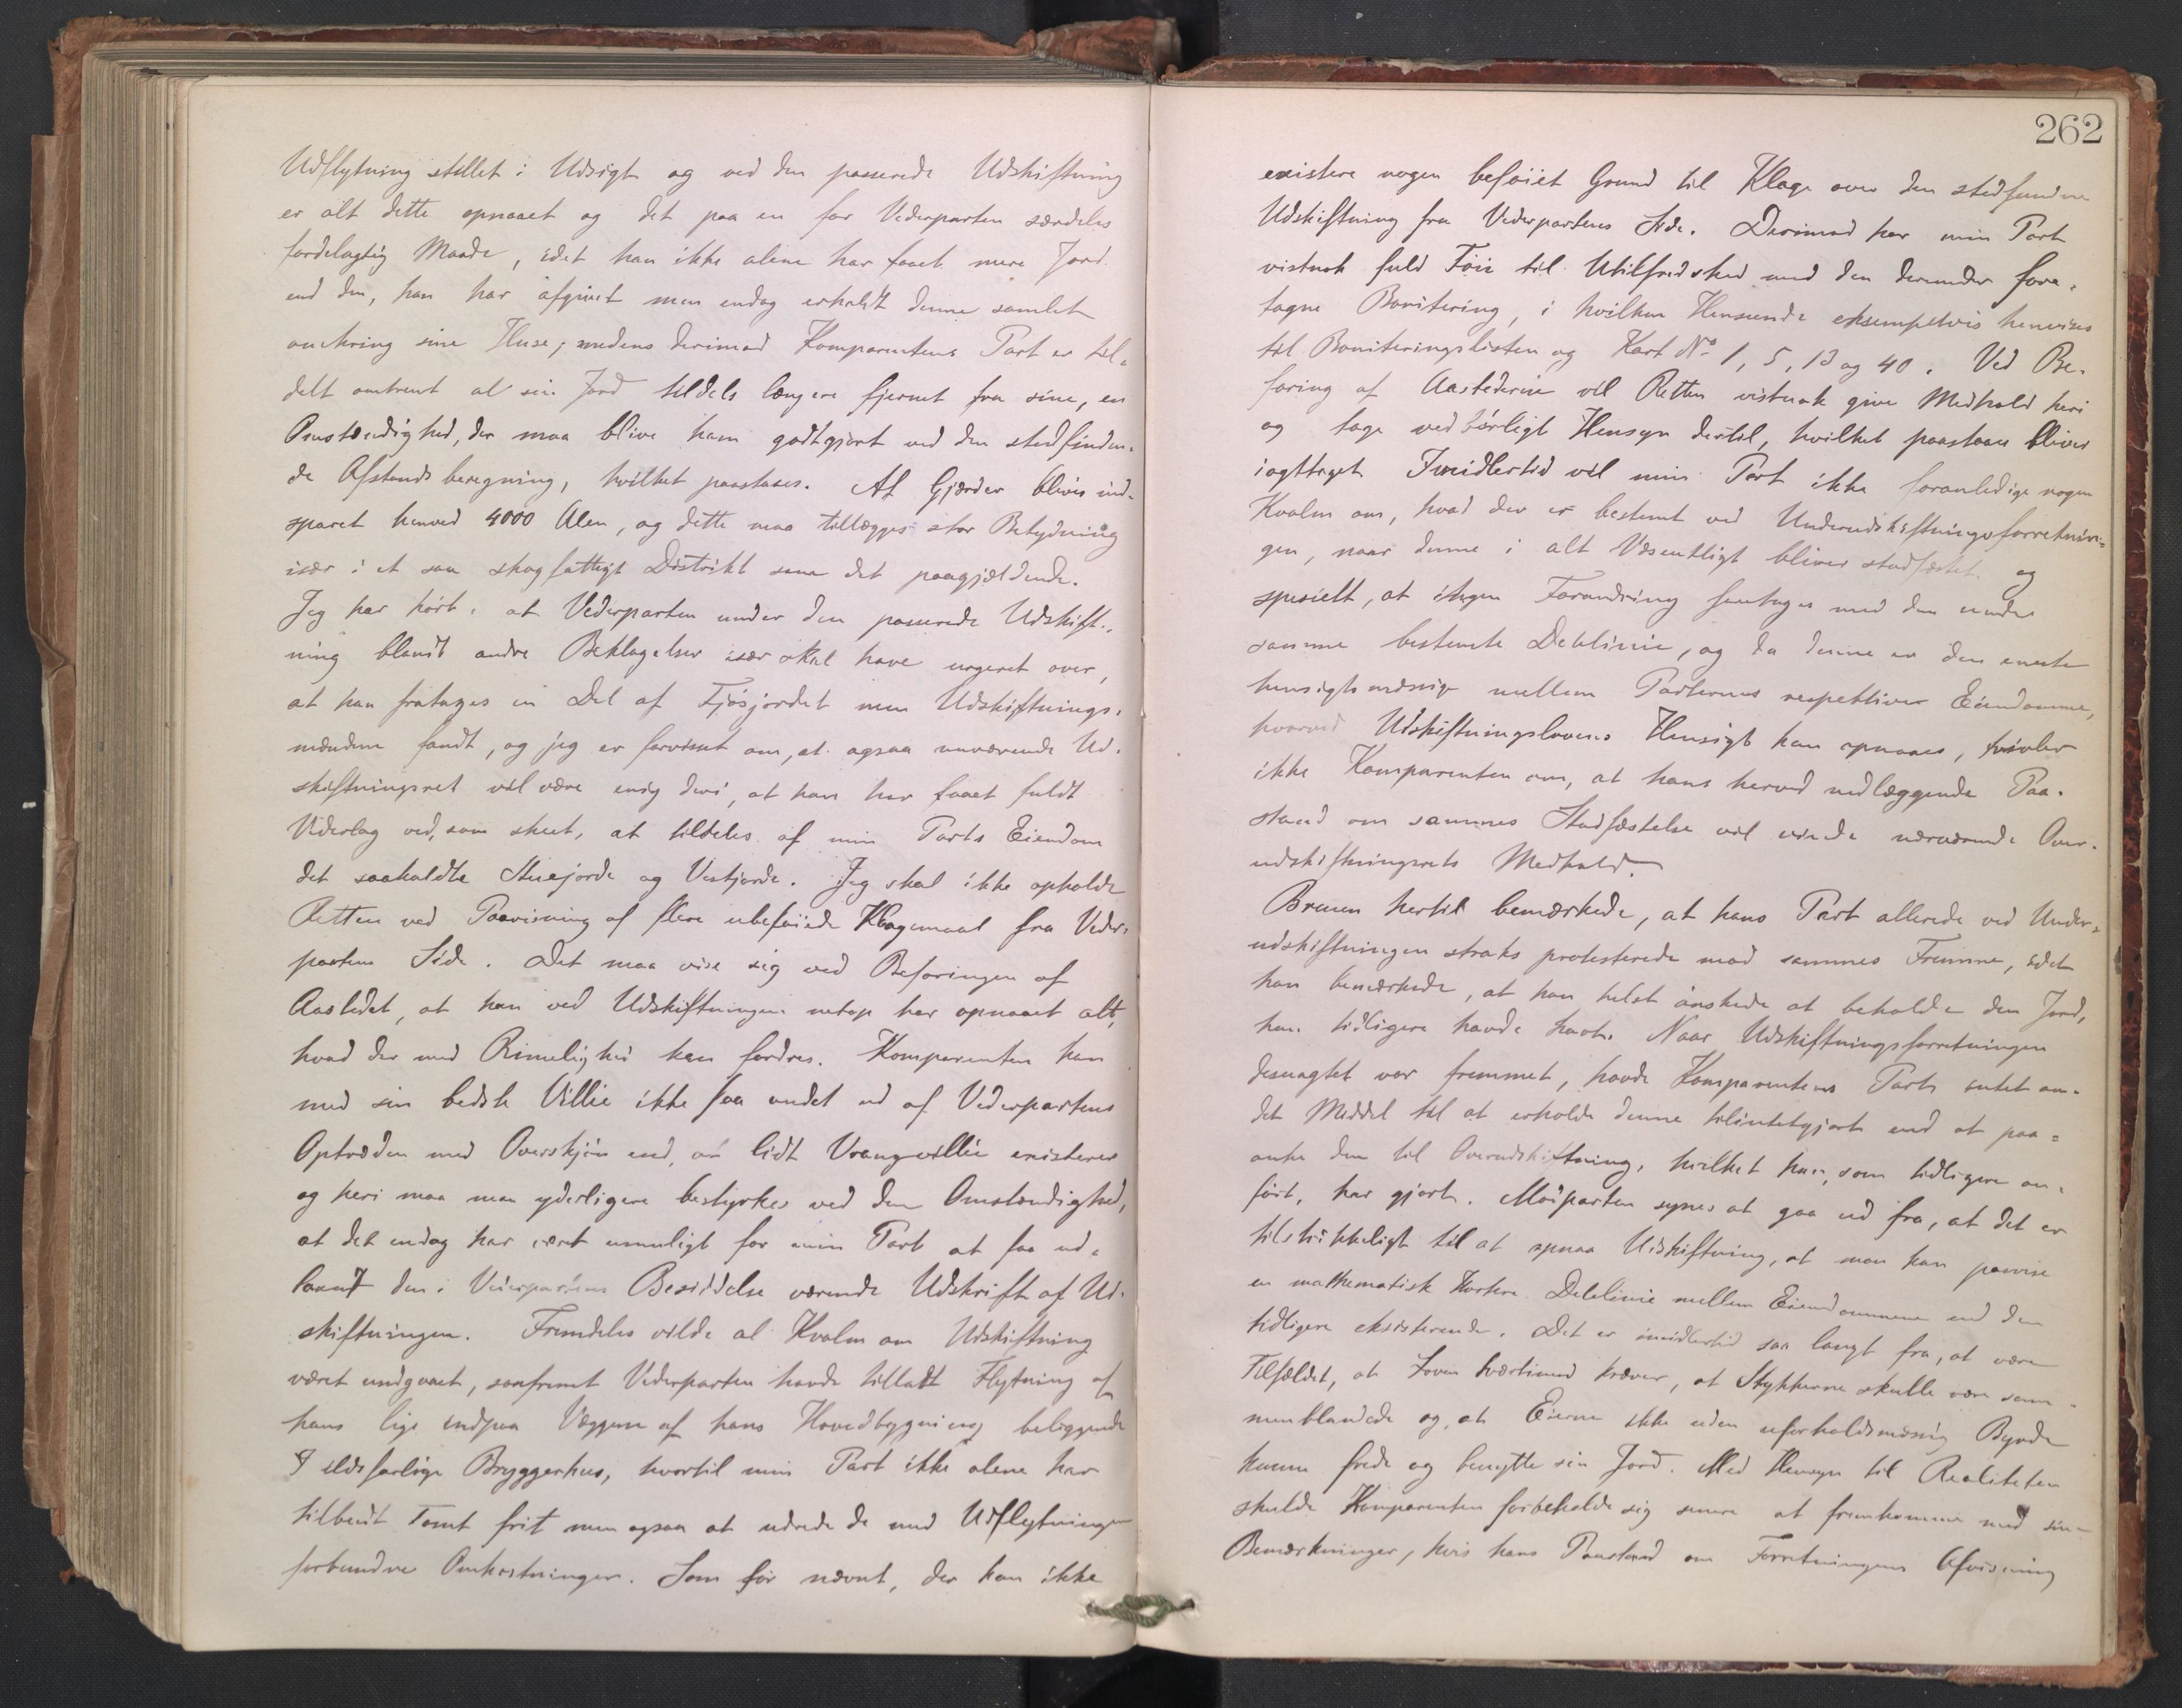 Udflytning stillet i Udsigt og ved den passerede Udskiftning
er alt dette opnaaet og det paa en for Vederparten særdeles
fordelagtig Maade, idet han ikke alene har faaet mere Jord
end den, han har afgivet men endog erholdt denne samlet
omkring sine Huse; medens derimod Komparentens Part er til-
delt omtrent al sin Jord tildels længere fjernet fra sine, en
Omstændighed, der maa blive ham godtgjort ved den stedfinden-
de Afstands beregning, hvilket paastaaes. Af Gjærder blives ind-
sparet henved 4000 Alen, og dette maa tillægges stor Betydning
især i et saa skogfattigt Distrikt som det paagjældende.
Jeg har hørt, at Vederparten under den passerede Udskift-
ning blandt andre Beklagelser især skal have urgeret over,
at han fratages en Del af Fjøsjordet men Udskiftnings-
mændene fandt, og jeg er forvisset om, at ogsaa nærværende Ud-
skiftningsret vil være enig deri, at han har faaet fuldt
Vederlag ved, som skeet, at tildeles af min Parts Eiendom
det saakaldte Stuejorde og Vestjorde. Jeg skal ikke opholde
Retten ved Paavisning af flere ubeføiede Klagemaal fra Veder-
partens Side. Det maa vise sig ved Befaringen af
Aastedet, at han ved Udskiftningen netop har opnaaet alt,
hvad der med Rimelighed kan fordres. Komparenten kan
med sin bedste Villie ikke faa andet ud af Vederpartens
Optræden med Overskjøn end, at lidt Vrangvillie existerer
og heri maa man yderligere bestyrkes ved den Omstændighed,
at det endog har været umuligt for min Part at faa ud-
laant den i Vederpartens Besiddelse værende Udskrift af Ud-
skiftningen. Fremdeles vilde al Kvalm om Udskiftning
været undgaaet, saafremt Vederparten havde tilladt Flytning af
hans lige indpaa Væggene af hans Hovedbygning beliggende
ildsfarlige Bryggerhus, hvortil min Part ikke alene har
tilbudt Tomt frit men ogsaa at udrede de med Udflytningen
forbundne Omkostninger. Som før nævnt, der kan ikke
262
existere nogen beføiet Grund til Klage over den stedfundne
Udskiftning fra Vederpartens Side. Derimod har min Part
vistnok fuld Føie til Utilfredshed med den derunder fore-
tagne Bonitering, i hvilken Henseende eksempelvis henvises
til Boniteringslisten og Kart No 1, 5, 13 og 40. Ved Be-
faring af Aastederne vil Retten vistnok give Medhold heri
og tage ved børligt Hensyn dertil, hvilket paastaaes bliver
iagttaget. Imidlertid vil min Part ikke foranledige nogen
Kvalm om, hvad der er bestemt ved Underudskiftningsforretnin-
gen, naar denne i alt Væsentligt bliver stadfæstet og
specielt, at ingen Forandring foretages med den under
samme bestemte Delelinie, og da denne er den eneste
hensigtsmæssige mellem Parternes respektive Eiendomme,
hvorved Udskiftningslovens Hensigt kan opnaaes, tvivler
ikke Komparenten om, at hans herved nedlæggende Paa-
stand om sammes Stadfæstelse vil vinde nærværende Over-
udskiftningsrets Medhold.
Bruun hertil bemærkede, at hans Part allerede ved Under-
udskiftningen straks protesterede mod sammes Fremme, idet
han bemærkede, at han helst ønskede at beholde den Jord,
han tidligere havde havt. Naar Udskiftningsforretningen
desuagtet var fremmet, havde Komparentens Part intet an-
det Middel til at erholde denne tilintetgjort end at paa-
anke den til Overudskiftning, hvilket han, som tidligere an-
ført, har gjort. Modparten synes at gaa ud fra, at det er
tilstrækkeligt til at opnaa Udskiftning, at man kan paavise
en mathematisk kortere Delelinie mellem Eiendommene end den
tidligere eksisterende. Det er imidlertid saa langt fra, at være
Tilfældet, at Loven tværtimod kræver, at Stykkerne skulle være sam-
menblandede og, at Eierne ikke uden uforholdsmæssig Byrde
kunne frede og benytte sin Jord. Med Hensyn til Realiteten
skulde Komparenten forbeholde sig senere at fremkomme med sine
Bemærkninger, hvis hans Paastand om Forretningens Afvisning